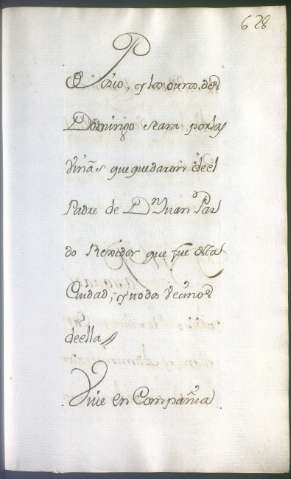 628
P
y los otros, del
Domingo para por las
Viñas que quedaron del
Padre de Dn Juan Par
do Rexidor que fue de esta
Ciudad, y
de ella
Vive en Compañia